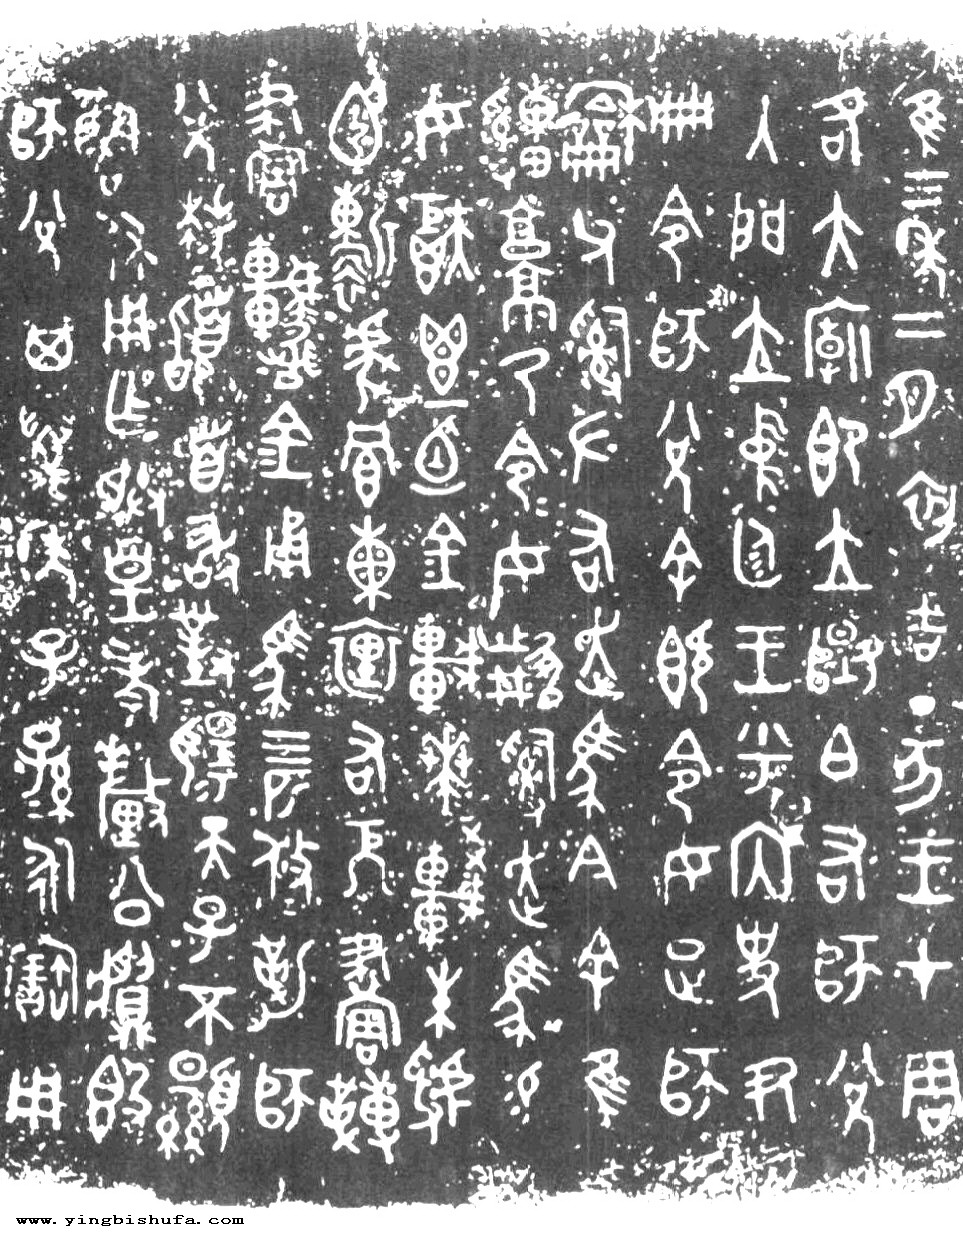 隹三年二月初吉丁亥王才周
各大廟即立𩁹白右師兌
入門立中廷王乎内史尹
冊令師兌余既令女疋師
龢父𤔲左右走馬今余隹
䌛𩫏乃令令女𤔲走馬易
女秬鬯一卣金車賁較朱虢
靳虎冟熏裏右厄畫
畫金甬馬四匹攸勒師
兌拜䭫首敢對揚天子不顯
魯休用乍朕皇考釐公簋
師兌其萬年子子孫孫永寶用
www.yingbishufa.com